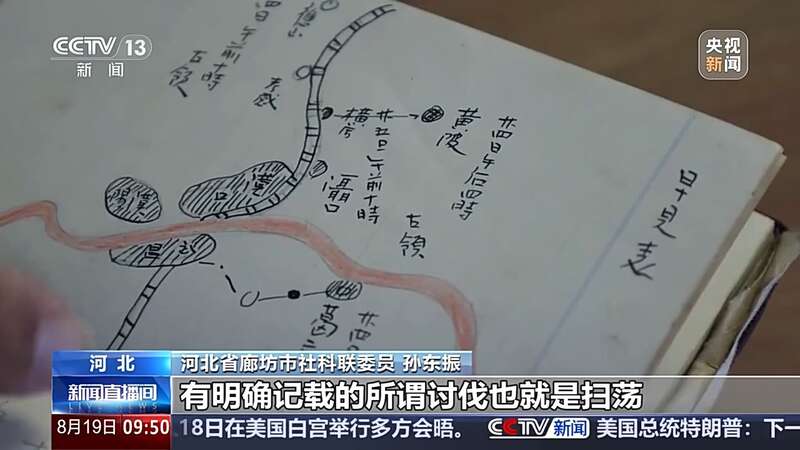 CCTV 13
新闻
央视
新闻
孝感
黄陂
廿四日午后四時
横店
廿五日午前十時
占領
灄口
漢口
漢陽
占領
河北
河北省廊坊市社科联委员 孙东振
新闻直播间
LIVE NEWS
有明确记载的所谓讨伐也就是扫荡
8月19日 09:50
18日在美国白宫举行多方会晤。 CCTV新闻 美国总统特朗普：下一